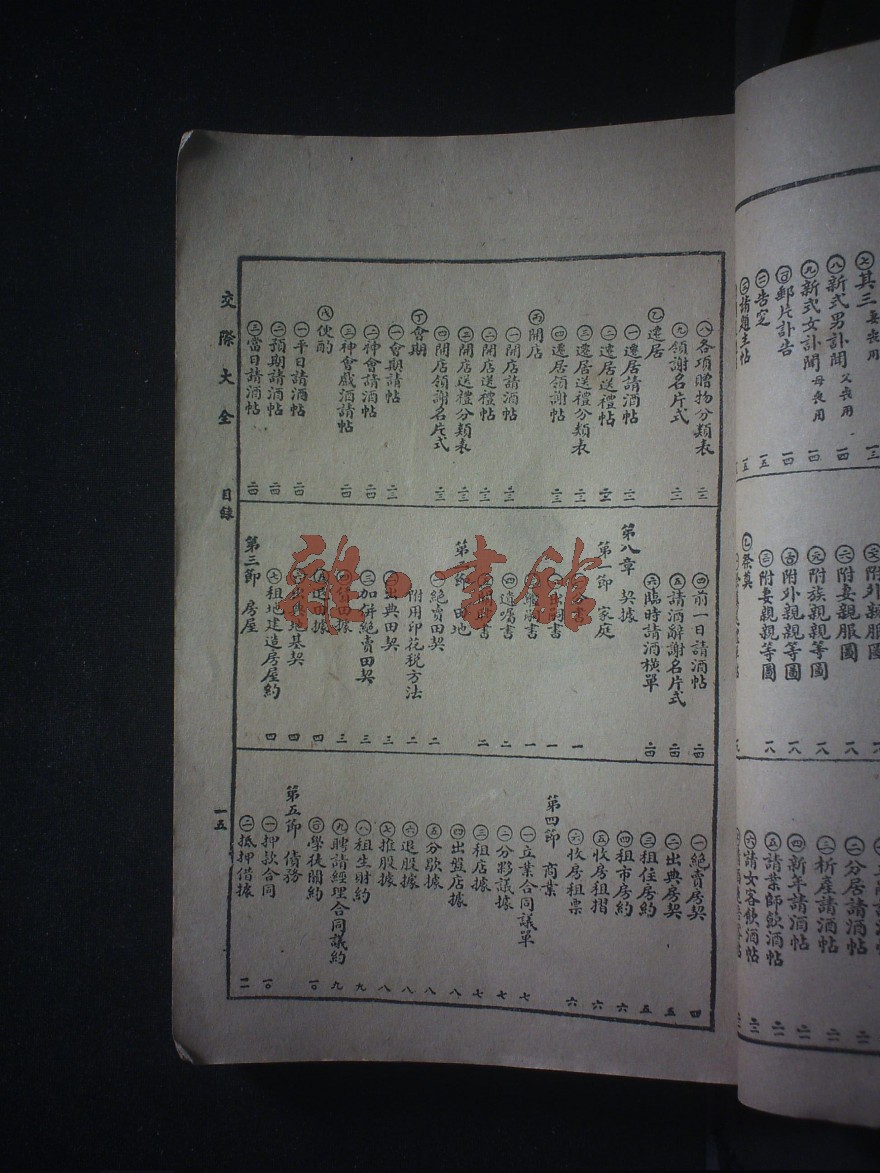 ㈧各項贈物分類表 二三
㈨領謝名片式 二三
㊁遷居
㈠遷居請酒帖 二三
㈡遷居送禮帖 二三
㈢遷居送禮分類表 二三
㈣遷居領謝帖 二三
㊂開店
㈠開店請酒帖 二三
㈡開店送禮帖 二三
㈢開店送禮分類表 二三
㈣開店領謝名片式 二三
㊃會期
㈠會期請帖 二三
㈡神會請酒帖 二四
㈢神會戲酒請帖 二四
㊄便酌
㈠平日請酒帖 二四
㈡預期請酒帖 二四
㈢當日請酒帖 二四
㈣前一日請酒帖 二四
㈤請酒辭謝名片式 二四
㈥臨時請酒橫單 二四
第八章 契據
第一節 家庭
分書 一
書 一
書 一
㈣遺囑書 二
書 二
第二節 田地
㈠絕賣田契 二
附用印花稅方法 二
㈡出典田契 三
㈢加併絕賣田契 三
㈣田據 三
㈤退田據 四
㈥出典地基契 四
㈦租地建造房屋約 四
第三節 房屋
㈠絕賣房契 四
㈡出典房契 五
㈢租住房約 五
㈣租市房約 六
㈤收房租摺 六
㈥收房租票 六
第四節 商業
㈠立業合同議單 七
㈡分夥議據 七
㈢租店據 七
㈣出盤店據 八
㈤分歇據 八
㈥退股據 八
㈦推股據 八
㈧租生財約 九
㈨聘請經理合同議約 九
㈩學徒關約 一〇
第五節 債務
㈠押款合同 一〇
㈡抵押借據 一一
交際大全 目錄 一五
㈦其三 妻喪用 一三
㈧新式男訃聞 父喪用 一四
㈨新式女訃聞 母喪用 一四
㈩郵片訃告 一四
告窆 一五
請題主帖 一五
附外親服圖
附妻親服圖 一八
附族親親等圖 一八
附外親親等圖 一八
附妻親親等圖 一八
祭奠
㈡分居請酒帖
㈢析產請酒帖
㈣新年請酒帖
㈤請業師飲酒帖
㈥請女客飲酒帖
雜·書館